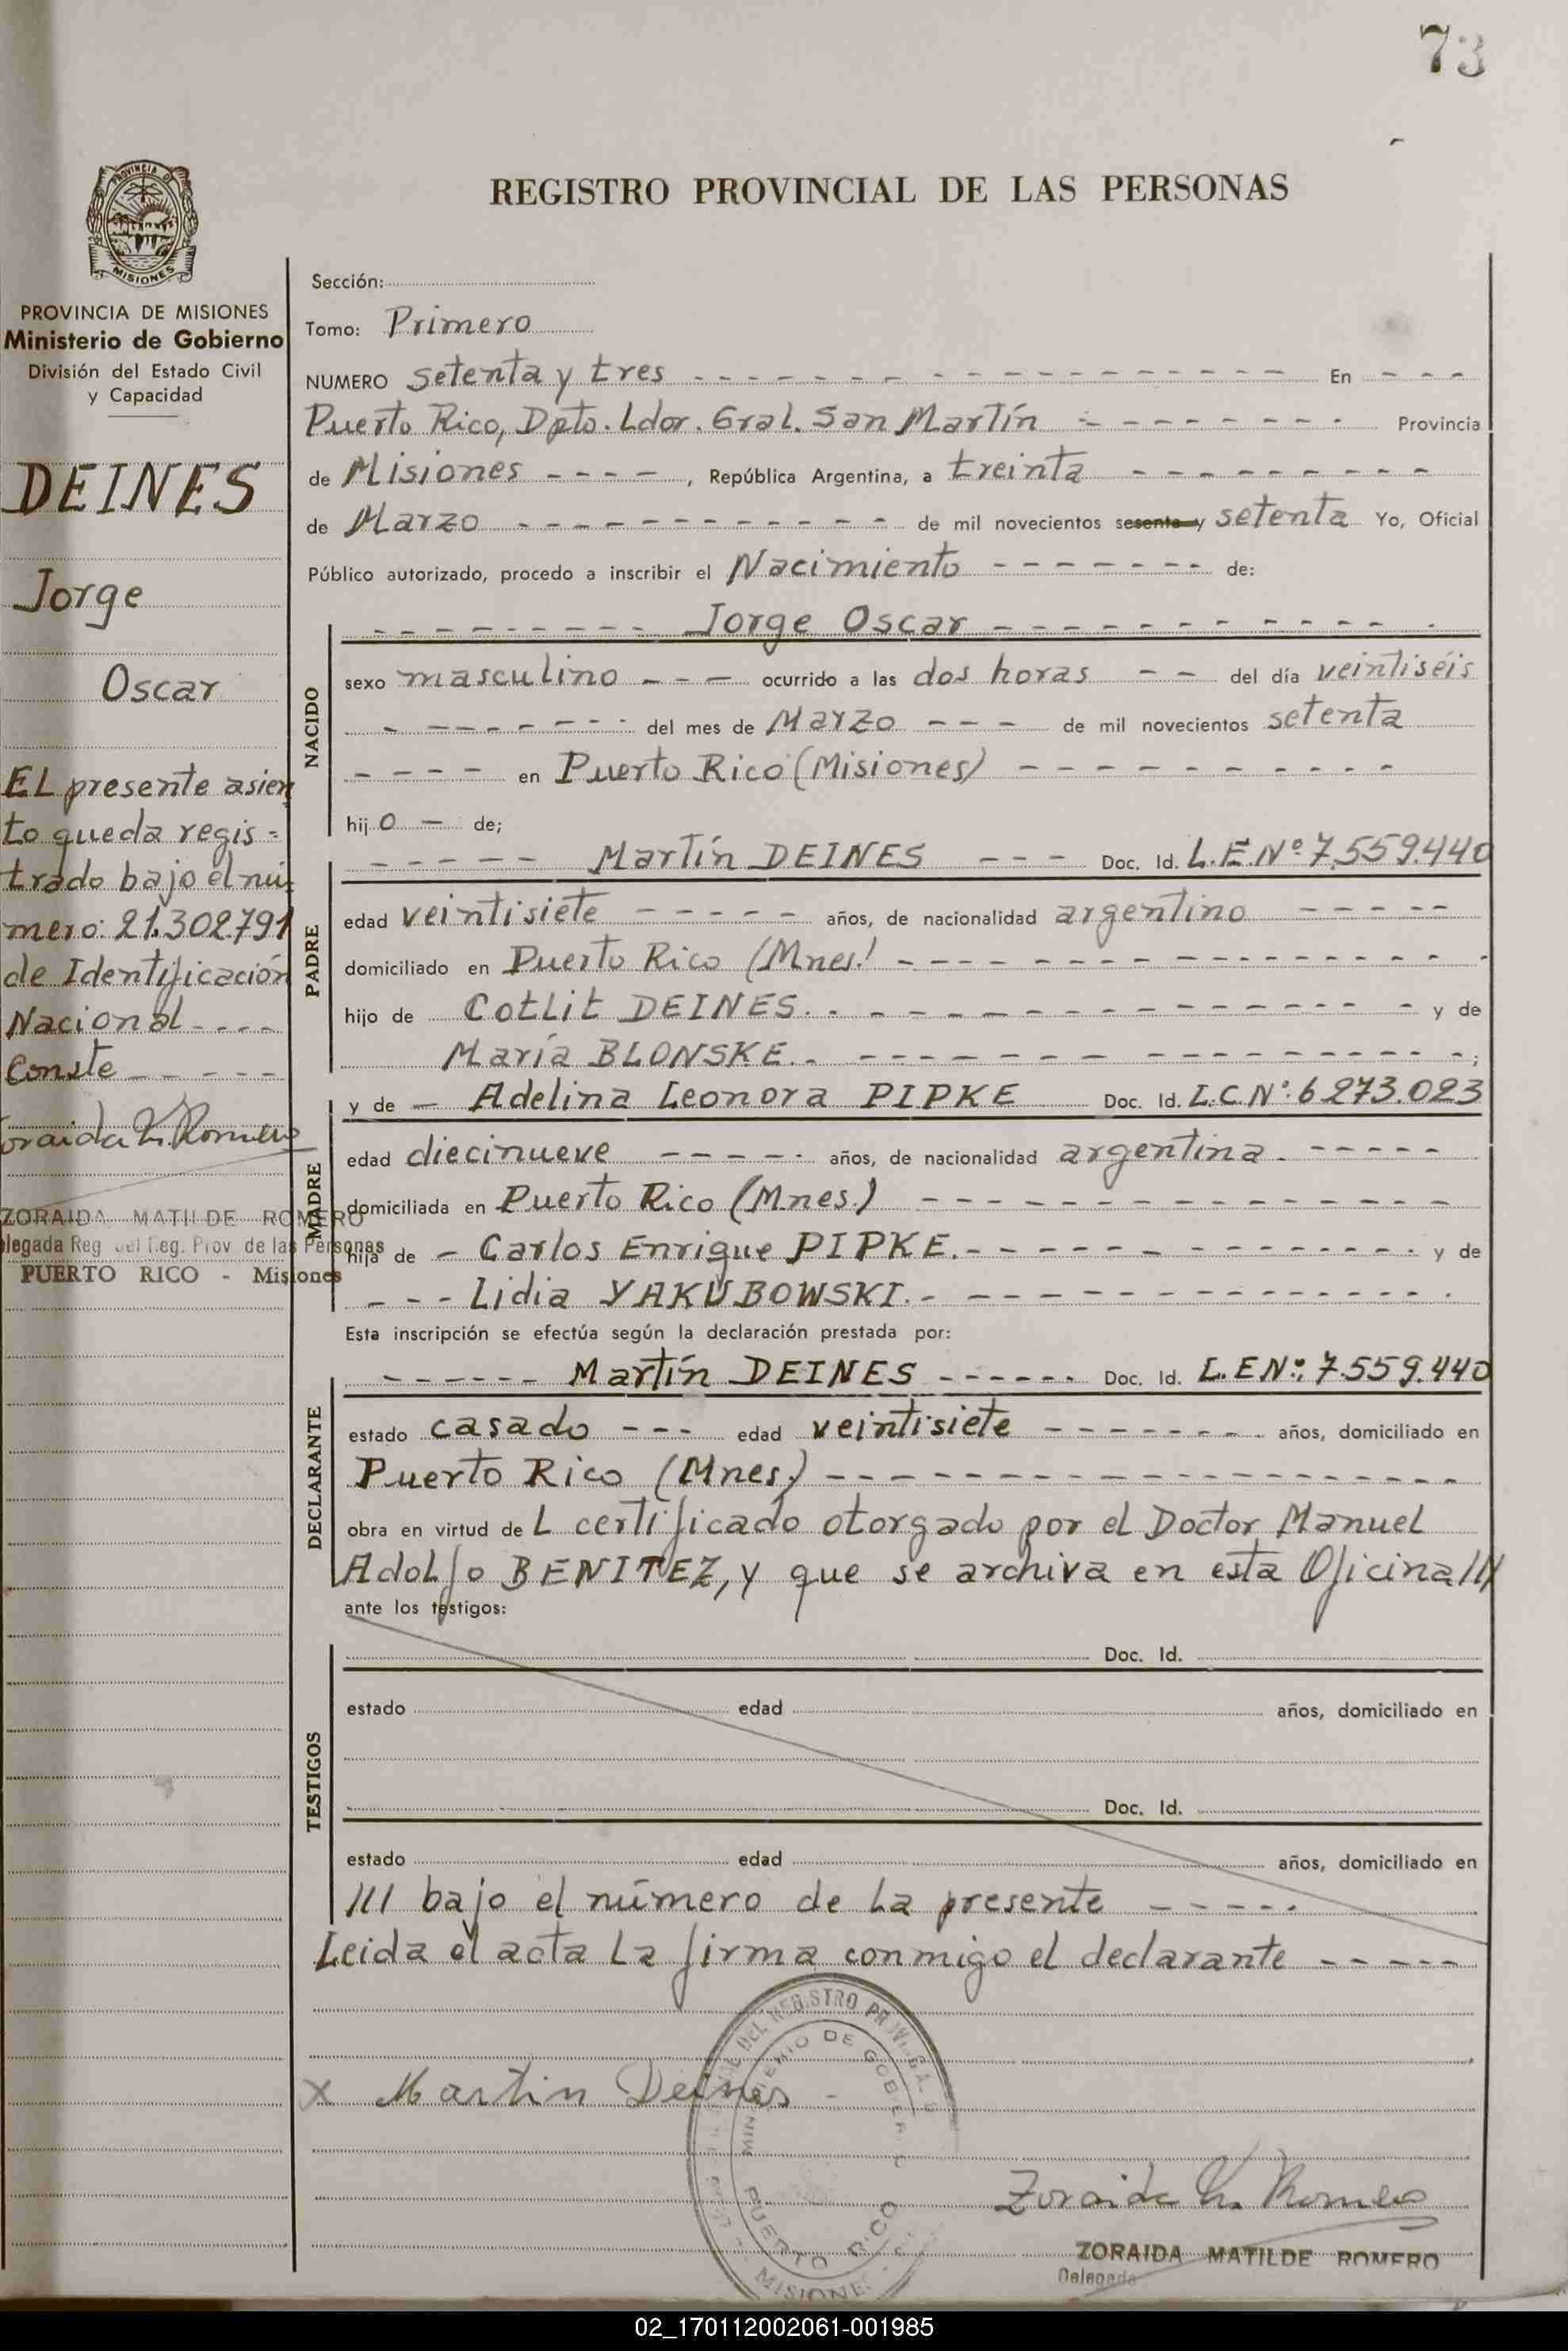 73
REGISTRO PROVINCIAL DE LAS PERSONAS
PROVINCIA DE
MISIONES
PROVINCIA DE MISIONES
Ministerio de Gobierno
División del Estado Civil
y Capacidad
DEINES
Jorge
Oscar
EL presente asien
to queda regis =
trado bajo el nú-
mero: 21.302.791
de Identificación
Nacional - - - -
Conste - - - - -
Zoraida M. Romero
ZORAIDA MATILDE ROMERO
Delegada Reg. del Reg. Prov de las Personas
PUERTO RICO - Misiones
Sección:
Tomo: Primero
NUMERO setenta y tres - - - - - - - - - - En - - -
Puerto Rico, Dpto. Ldor. Gral. San Martín - - - - - - - Provincia
de Misiones - - - -, República Argentina, a treinta - - - - - - - - -
de Marzo - - - - - - - - - - de mil novecientos sesenta y setenta Yo, Oficial
Público autorizado, procedo a inscribir el Nacimiento - - - - - - - de:
- - - - - - - - - Jorge Oscar - - - - - - - - - -
NACIDO
sexo masculino - - - ocurrido a las dos horas - - del día veintiséis
- - - - - - - - del mes de Marzo - - - de mil novecientos setenta
- - - - en Puerto Rico (Misiones) - - - - - - - - - -
hij o - de;
- - - - - Martín DEINES - - - Doc. Id. L.E.Nº 7.559.440
PADRE
edad veintisiete - - - - - años, de nacionalidad argentino - - - - -
domiciliado en Puerto Rico (Mnes.) - - - - - - - - - - - -
hijo de Cotlit DEINES. - - - - - - - - - - - y de
María BLONSKE. - - - - - - - - - - - - - -;
y de - Adelina Leonora PIPKE Doc. Id. L.C.Nº: 6.273.023
MADRE
edad diecinueve - - - - - años, de nacionalidad argentina. - - - - -
domiciliada en Puerto Rico (Mnes.) - - - - - - - - - - -
hija de - Carlos Enrique PIPKE. - - - - - - - - - - y de
- - - Lidia YAKUBOWSKI. - - - - - - - - - - - -
Esta inscripción se efectúa según la declaración prestada por:
- - - - - - Martín DEINES - - - - - - Doc. Id. L.E.Nº: 7.559.440
DECLARANTE
estado casado - - - edad veintisiete - - - - - - - - años, domiciliado en
Puerto Rico (Mnes.) - - - - - - - - - - - - - - -
obra en virtud de L certificado otorgado por el Doctor Manuel
Adolfo BENITEZ, y que se archiva en esta Oficina ///
ante los testigos:
Doc. Id.
TESTIGOS
estado edad años, domiciliado en
Doc. Id.
estado edad años, domiciliado en
/// bajo el número de la presente - - - - -
Leida el acta la firma conmigo el declarante - - - - -
x Martin Deines
MINISTERIO DE GOBIER
PUERTO RICO
MISIONES
Zoraida M. Romero
ZORAIDA MATILDE ROMERO
Delegada
02_170112002061-001985